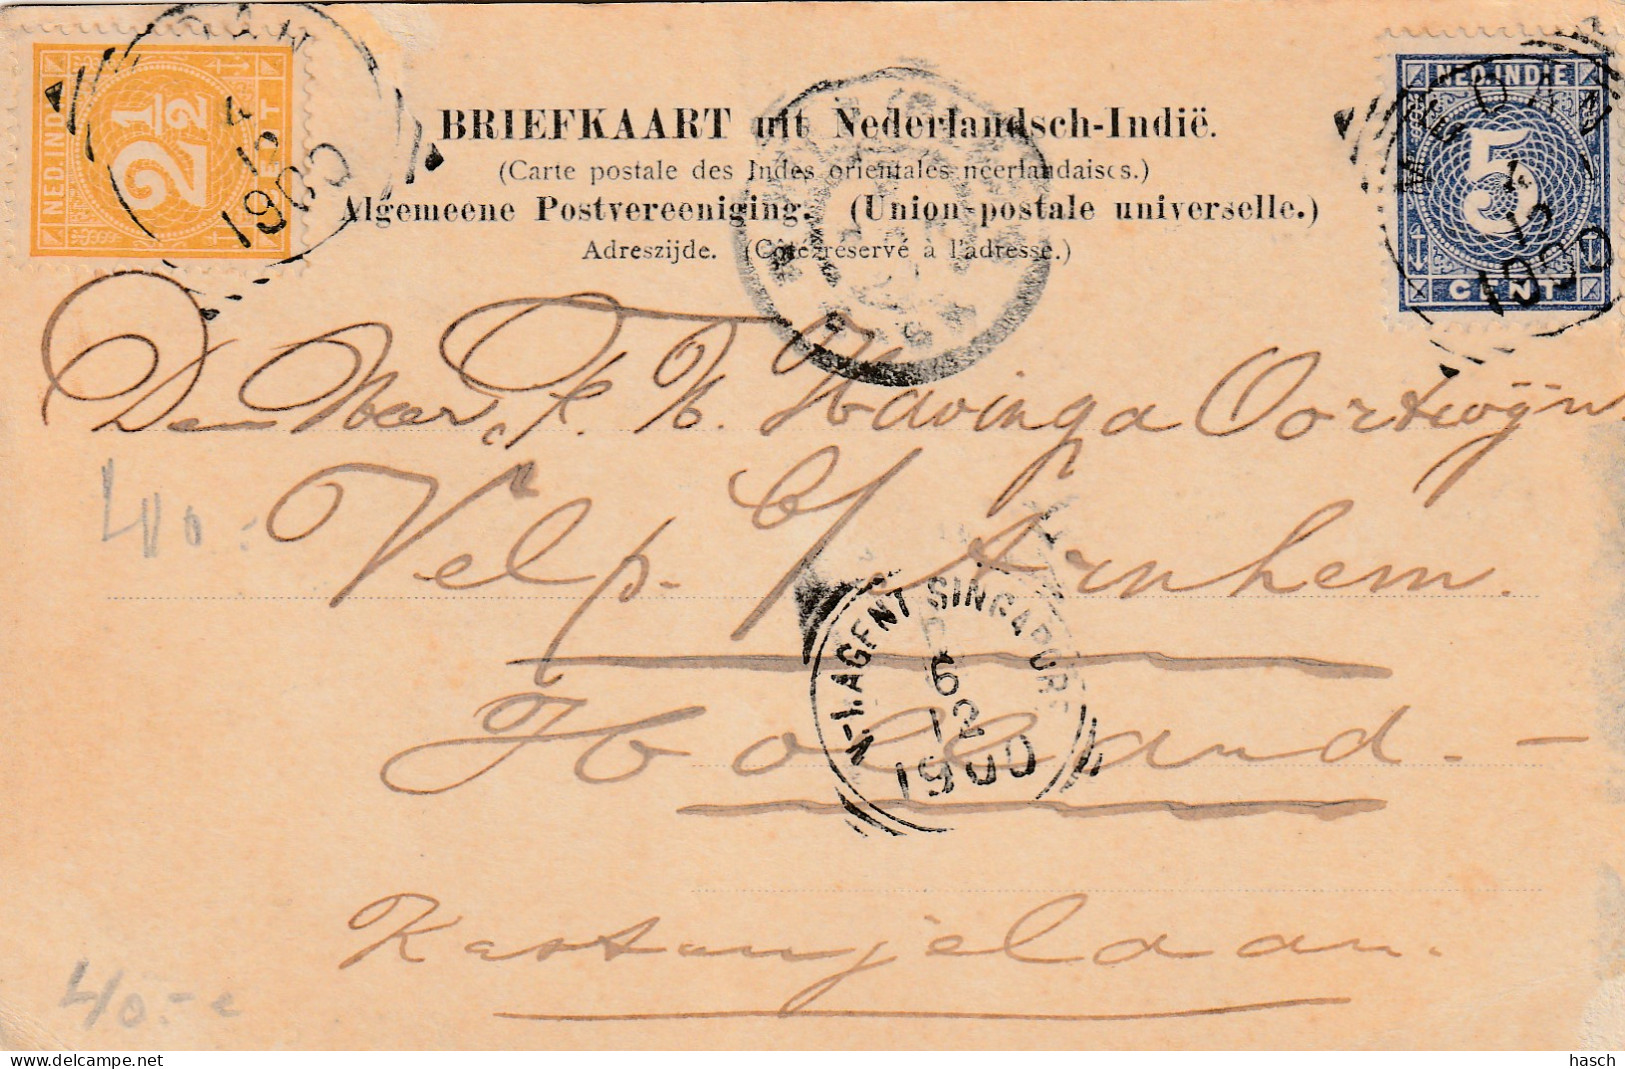 BRIEFKAART uit Nederlandsch-Indië.
(Carte postale des Indes orientales néerlandaises.)
Algemeene Postvereeniging. (Union postale universelle.)
Adreszijde. (Côté réservé à l'adresse.)
NED.INDIE
2½
CENT
4
12
1900
NED.INDIE
5
CENT
4
12
1900
Den Heer, F. N. Havinga Oortwijn
Velp. b/ Arnhem.
Holland. -
Kastanjelaan.
N-I. AGENT SINGAPORE
6
12
1900
40.-
40.-e
hasch